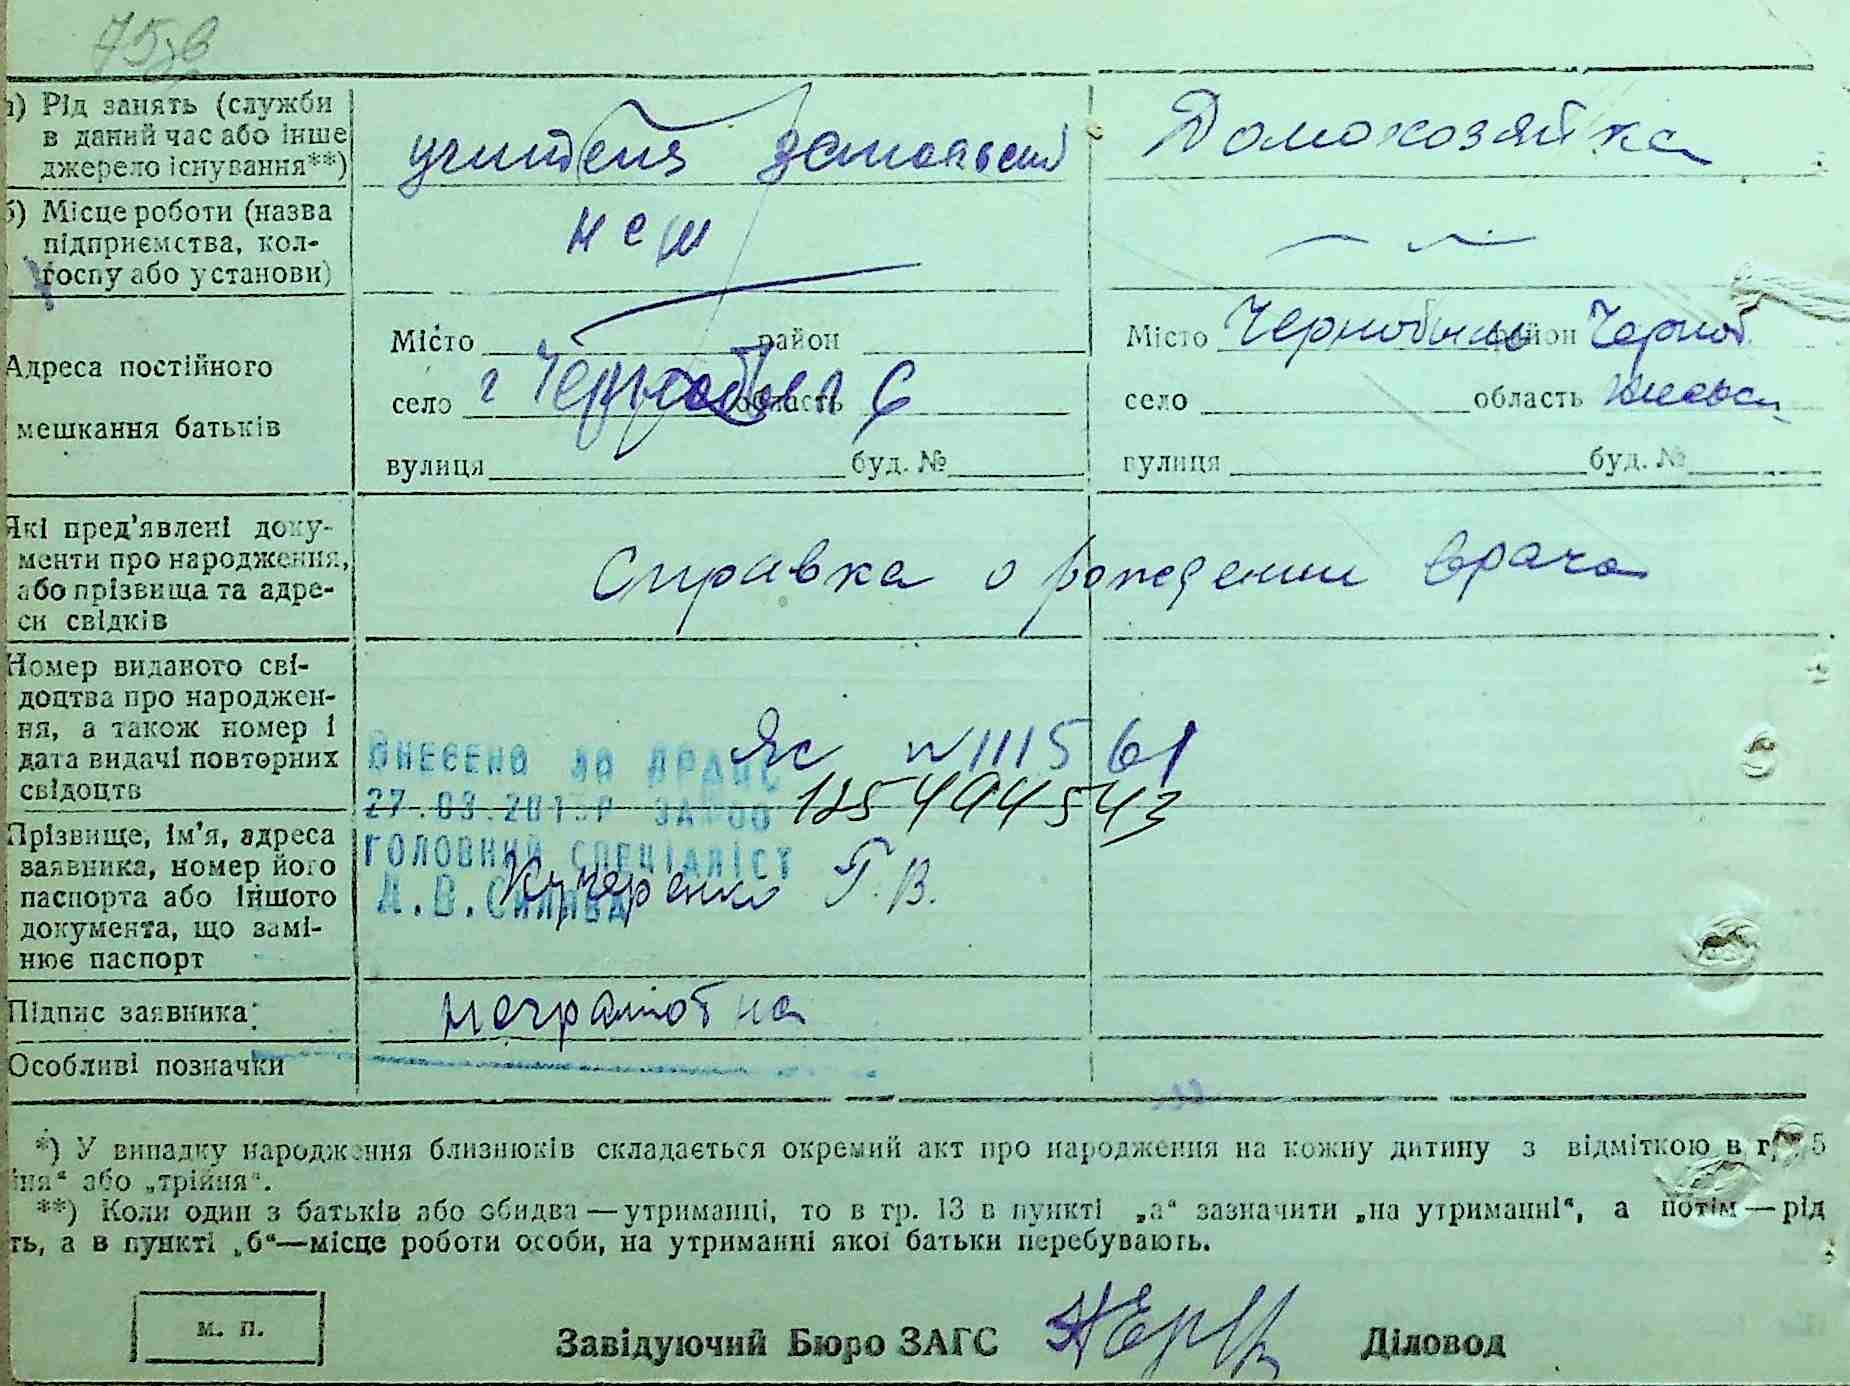 а) Рід занять (служби
в даний час або інше
джерело існування**)
Домохозяйка
б) Місце роботи (назва
підприємства, кол-
госпу або установи)
Адреса постійного
мешкання батьків
Місто район
г Чернобыл
село область
вулиця буд. №
Місто Чернобыль район Черноб.
село область Киевск
вулиця буд. №
Які пред'явлені доку-
менти про народження,
або прізвища та адре-
си свідків
Справка о рождении врача
Номер виданого сві-
доцтва про народжен-
ня, а також номер і
дата видачі повторних
свідоцтв
Яс №111561
1254944543
ВНЕСЕНО ДО ДРАЦС
27.03.201
ГОЛОВНИЙ СПЕЦІАЛІСТ
Прізвище, ім'я, адреса
заявника, номер його
паспорта або іншого
документа, що замі-
нює паспорт
Кучеренко Г.В.
Підпис заявника:
неграмотна
Особливі позначки
*) У випадку народження близнюків складається окремий акт про народження на кожну дитину з відміткою в гр. 5
або „трійня“.
**) Коли один з батьків або обидва — утриманці, то в гр. 13 в пункті „а“ зазначити „на утриманні“, а потім — рід
ть, а в пункті „б“—місце роботи особи, на утриманні якої батьки перебувають.
м. п.
Завідуючий Бюро ЗАГС
Діловод